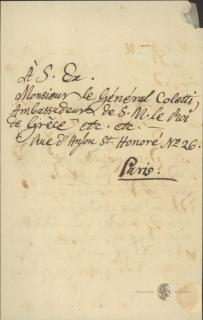 À S. Ex.
Monsieur le Général Coletti,
Ambassadeur de S. M. le Roi
de Grèce etc. etc. —
Rue d'Anjou St. Honoré No 26.
Paris.